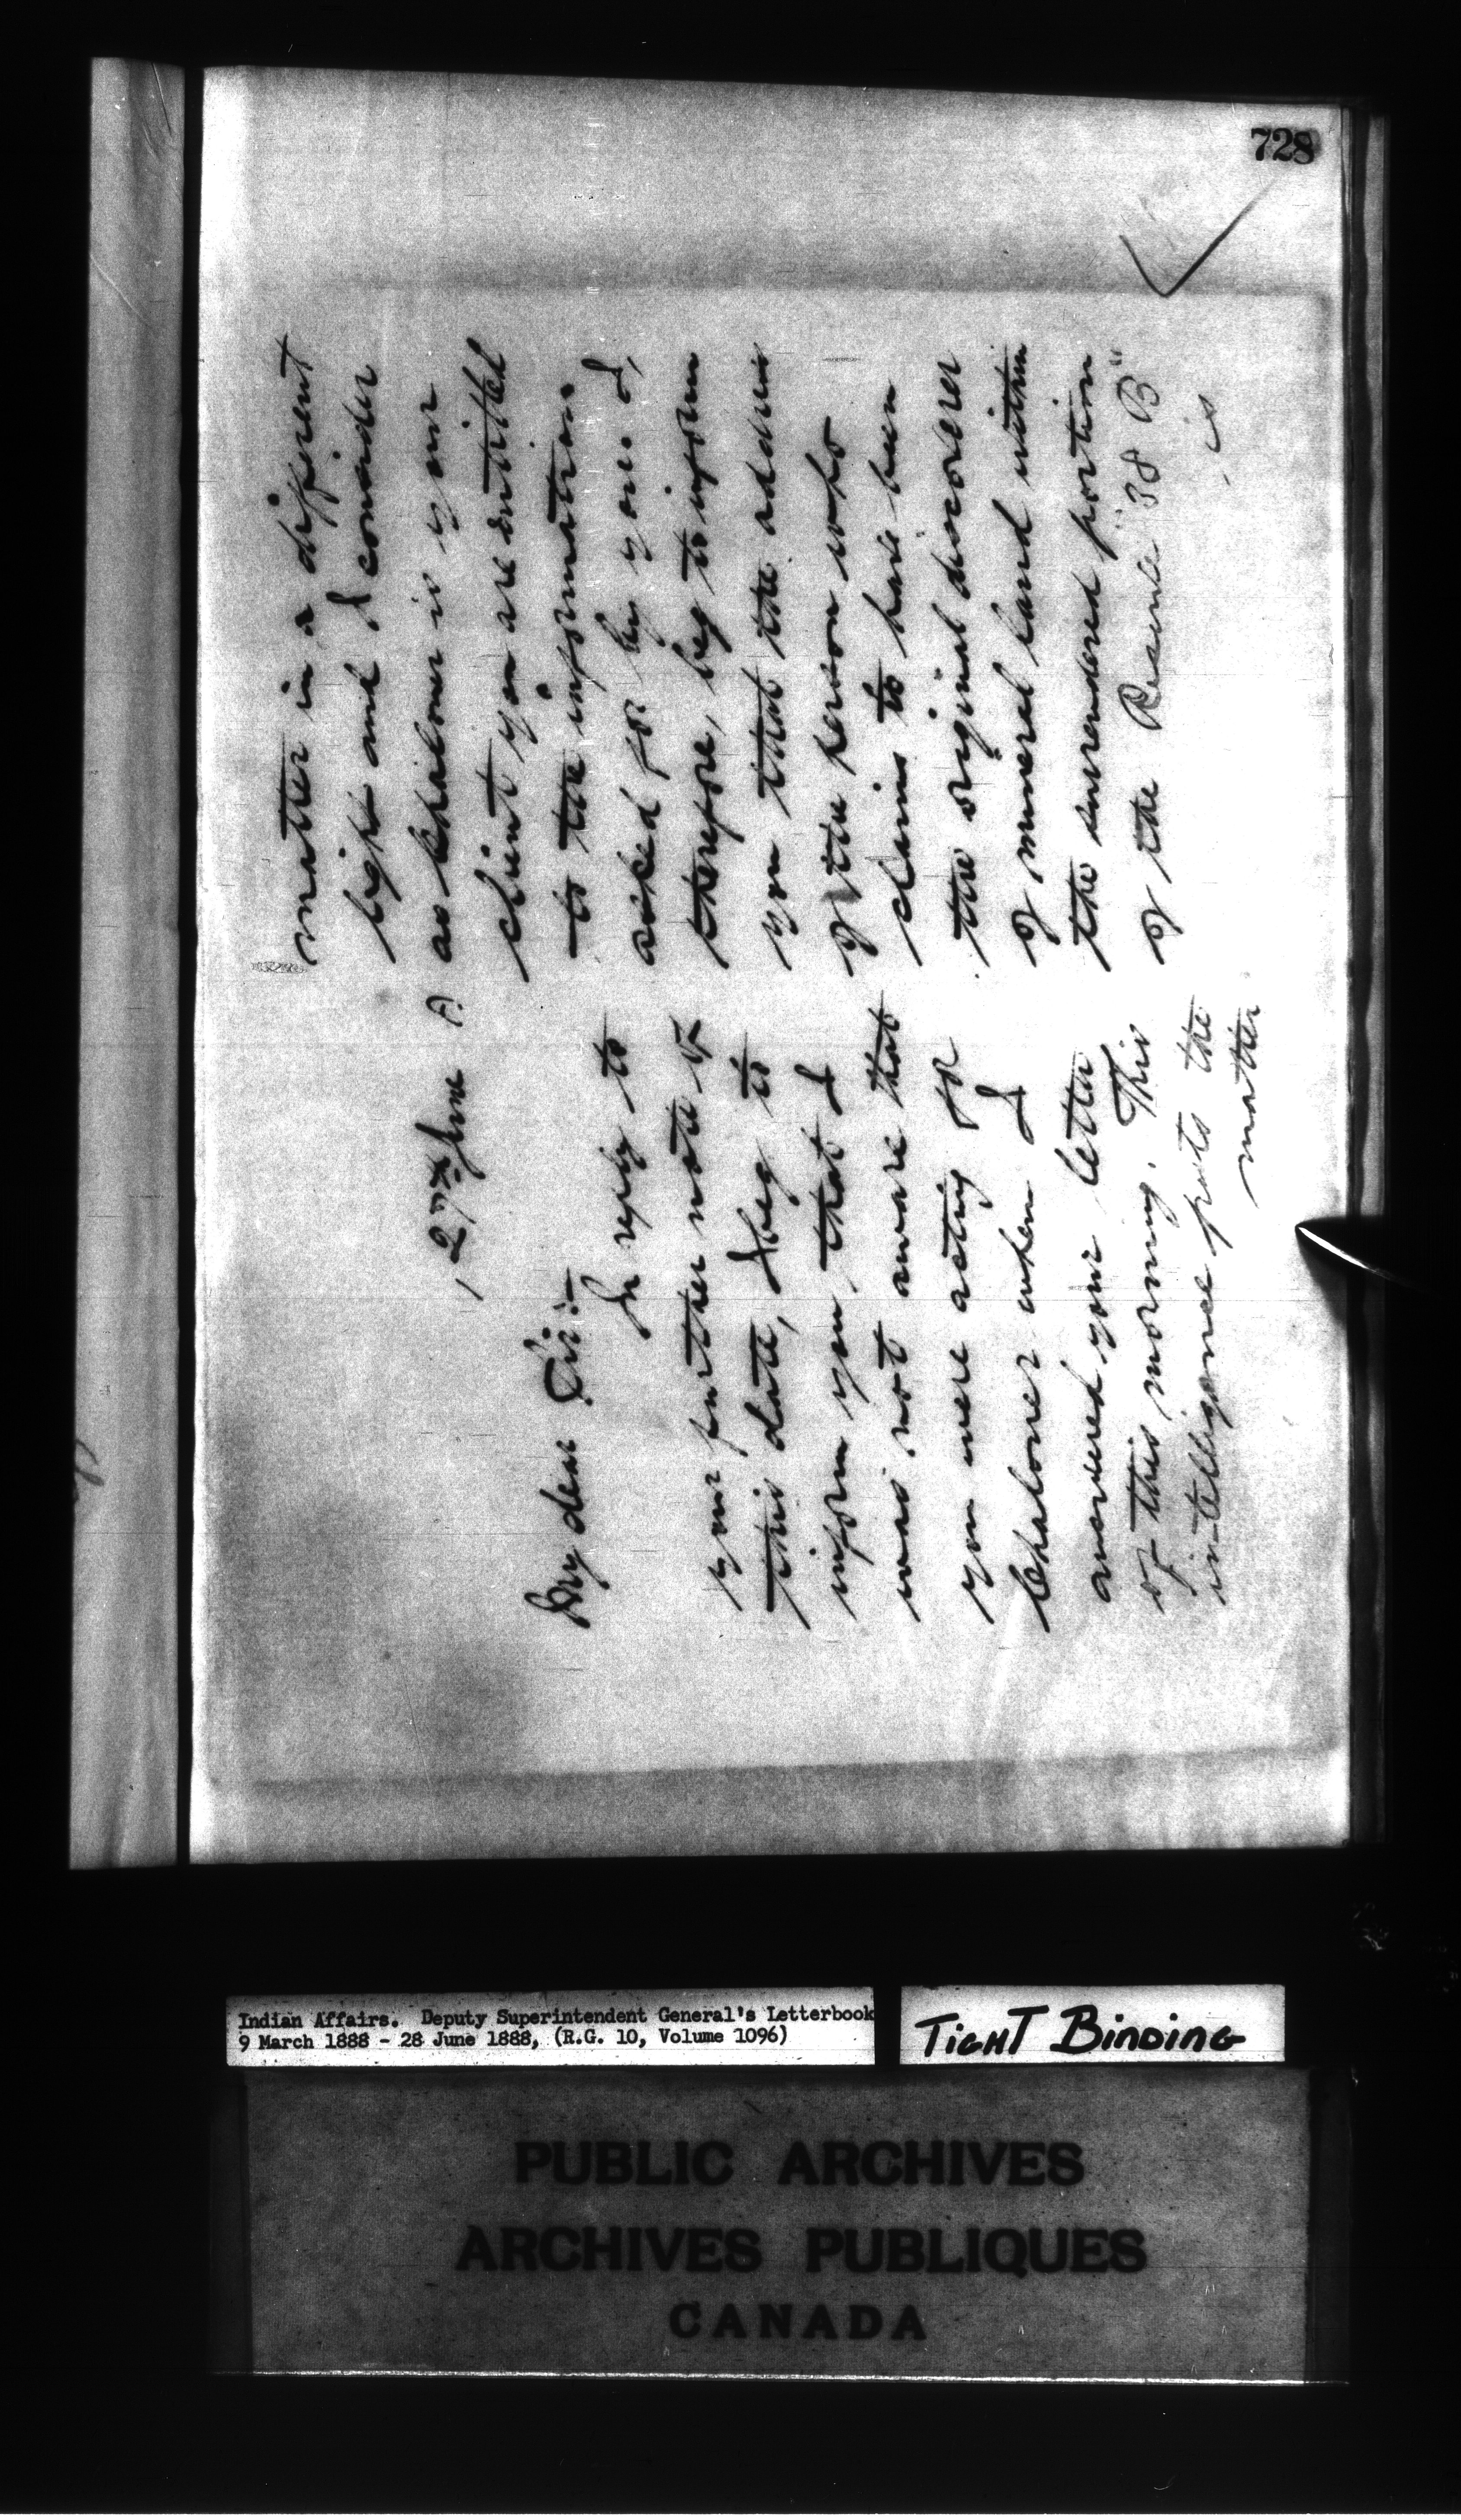 728
, 27th June A.
My dear Sir:—
In reply to
your further note of
this date, I beg to
inform you, that I
was not aware that
you were acting for
Chaloner when I
answered your letter
of this morning. This
intelligence puts the
matter
matter in a different
light and I consider
as Chaloner is your
client you are entitled
to the information
asked for by you. I,
therefore, beg to inform
you that the address
of the person who
claims to have been
the original discoverer
of mineral land within
the surrendered portion
of the Reserve "38 B"
is
Indian Affairs. Deputy Superintendent General's Letterbook
9 March 1888 - 28 June 1888, (R.G. 10, Volume 1096)
TIGHT BINDING
PUBLIC ARCHIVES
ARCHIVES PUBLIQUES
CANADA